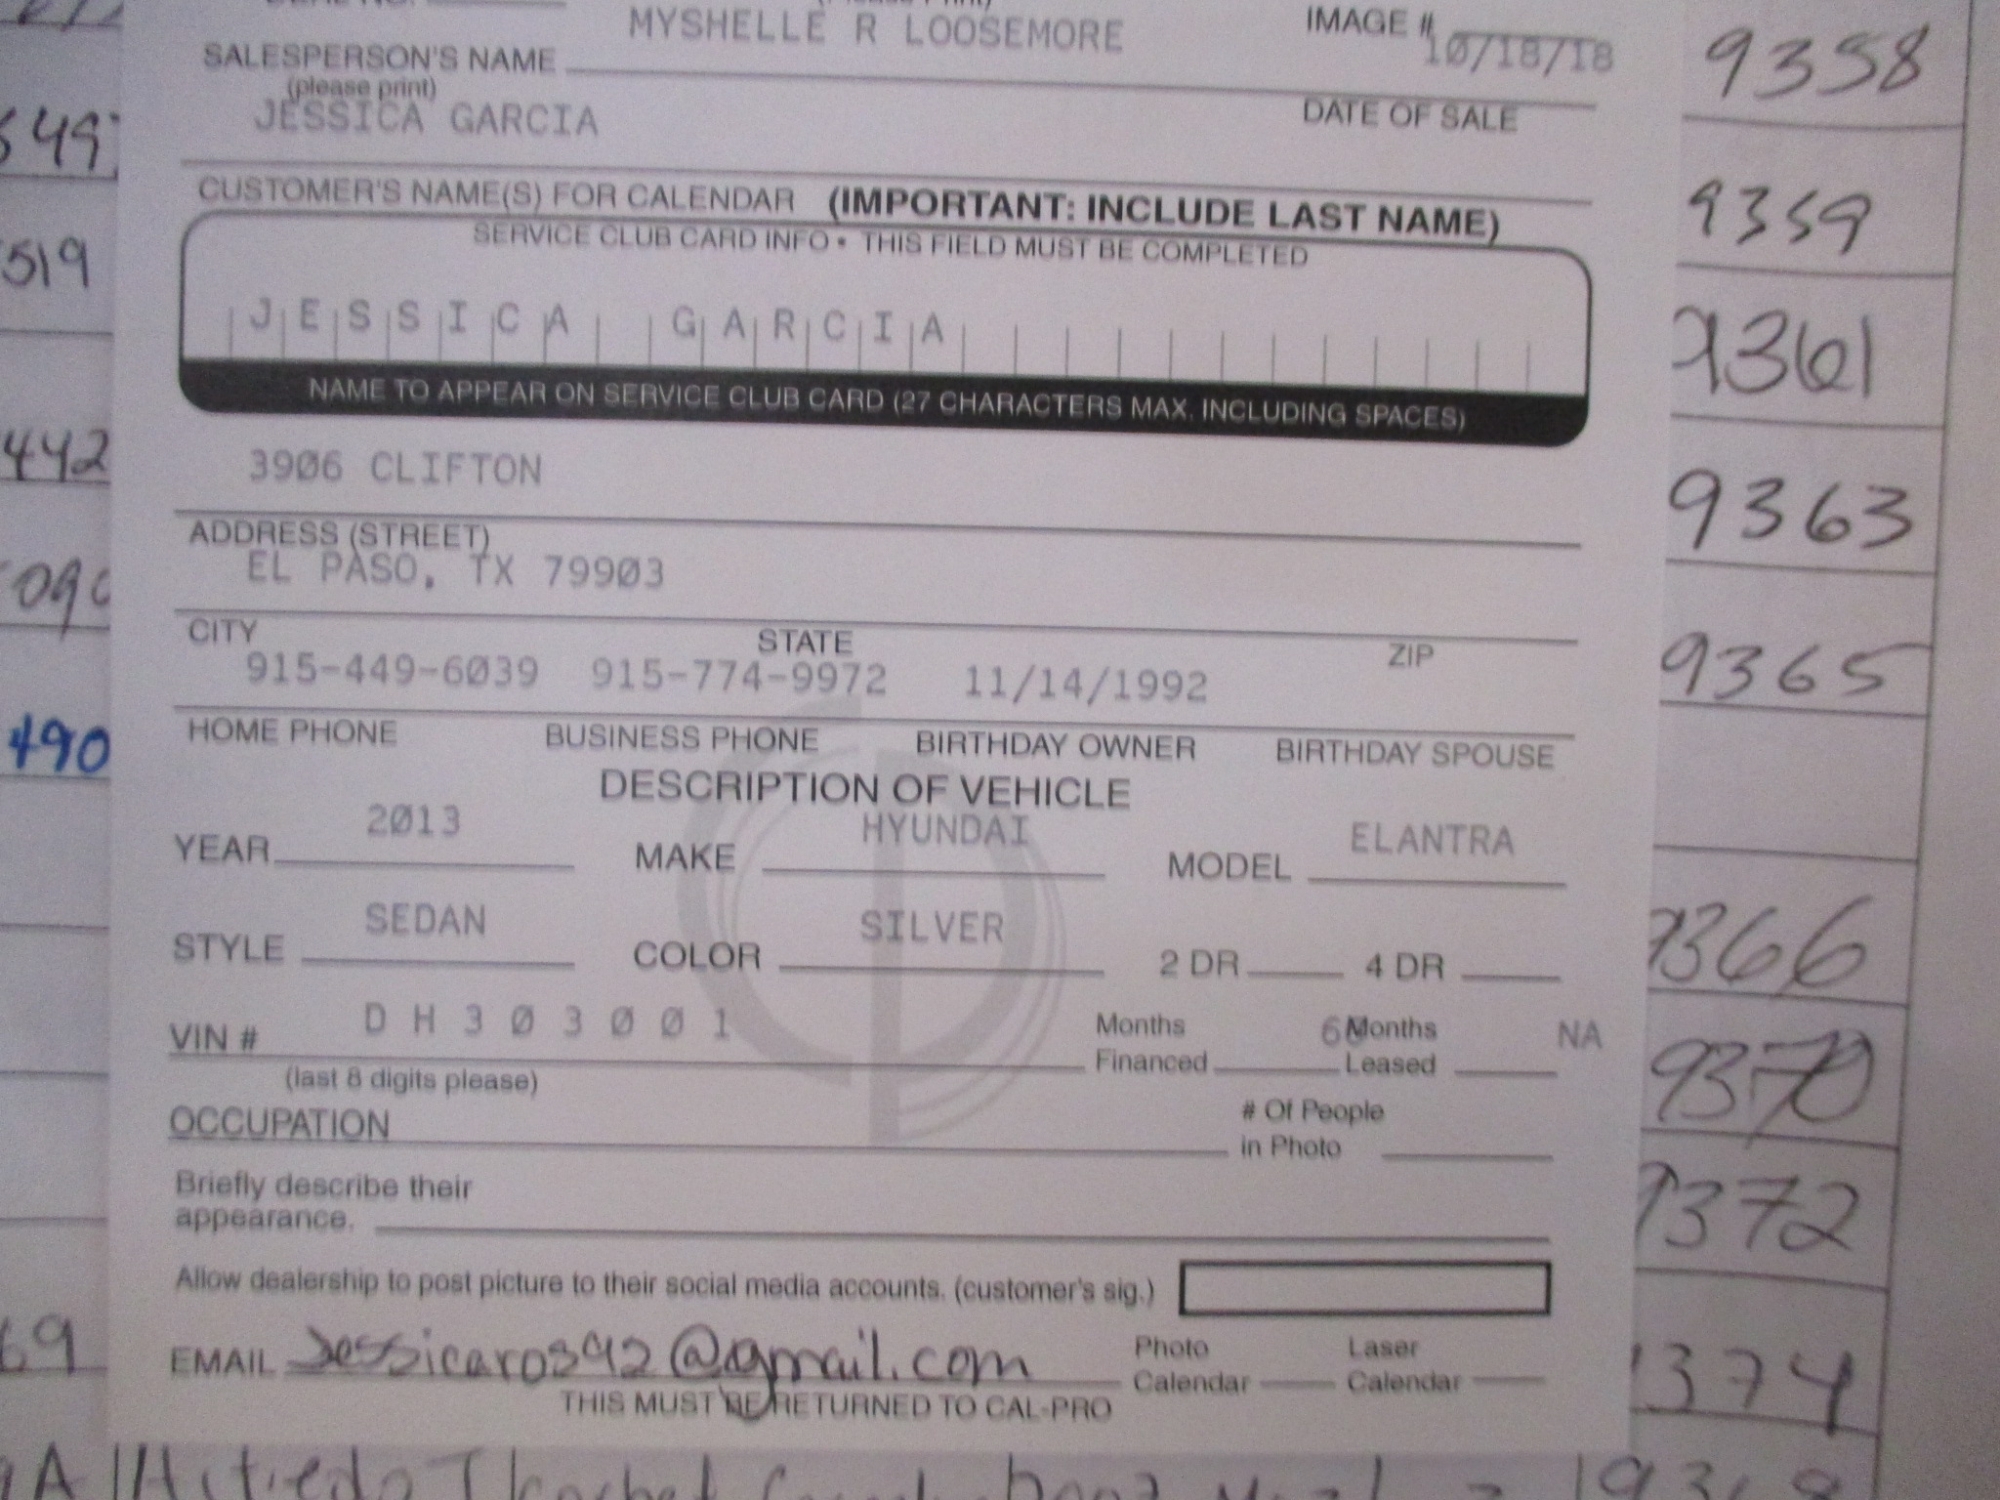 MYSHELLE R LOOSEMORE
IMAGE #
SALESPERSON'S NAME
10/18/18
(please print)
JESSICA GARCIA
DATE OF SALE
CUSTOMER'S NAME(S) FOR CALENDAR (IMPORTANT: INCLUDE LAST NAME)
SERVICE CLUB CARD INFO • THIS FIELD MUST BE COMPLETED
JESSICA GARCIA
NAME TO APPEAR ON SERVICE CLUB CARD (27 CHARACTERS MAX. INCLUDING SPACES)
3906 CLIFTON
ADDRESS (STREET)
EL PASO, TX 79903
CITY STATE ZIP
915-449-6039 915-774-9972 11/14/1992
HOME PHONE BUSINESS PHONE BIRTHDAY OWNER BIRTHDAY SPOUSE
DESCRIPTION OF VEHICLE
YEAR 2013 MAKE HYUNDAI MODEL ELANTRA
STYLE SEDAN COLOR SILVER 2 DR 4 DR
VIN # D H 3 0 3 0 0 1 Months Financed Months Leased NA
(last 8 digits please)
OCCUPATION # Of People in Photo
Briefly describe their
appearance.
Allow dealership to post picture to their social media accounts. (customer's sig.)
EMAIL Jessicaros92@gmail.com Photo Calendar Laser Calendar
THIS MUST BE RETURNED TO CAL-PRO
519
442
490
69
9358
9359
9361
9363
9365
9366
9370
9372
9374